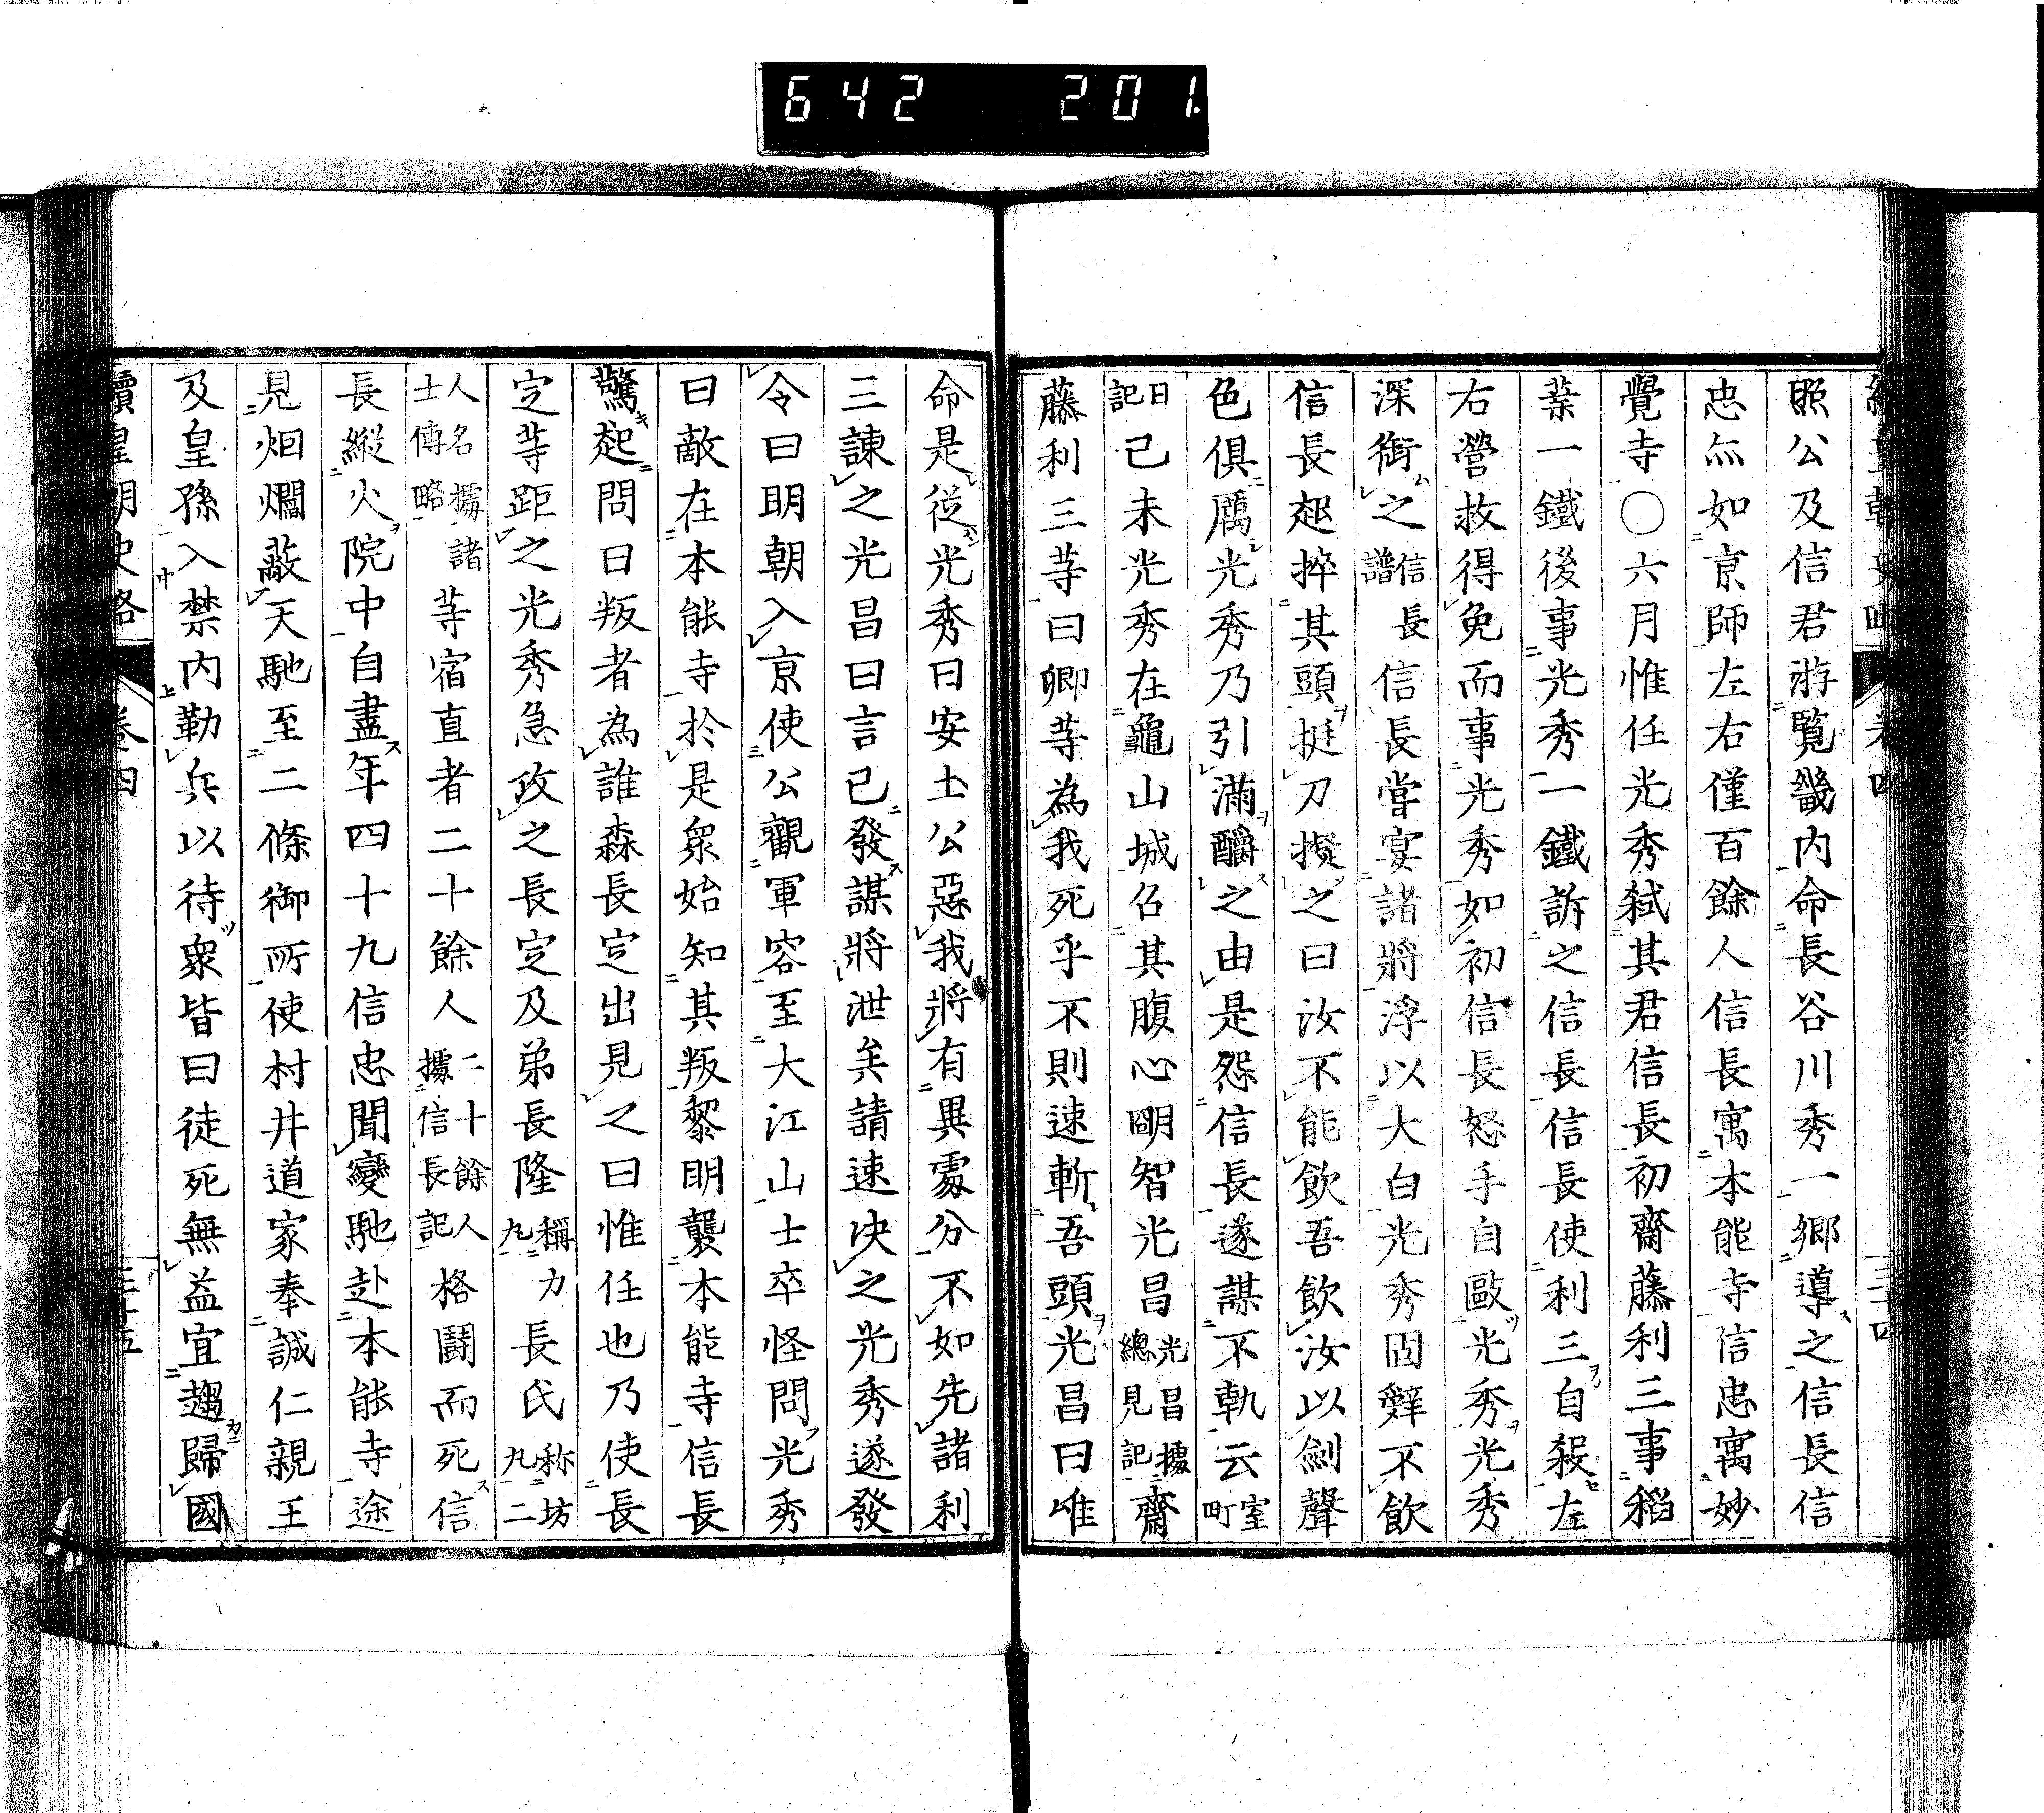 642 201.
照公及信君游覽畿内命長谷川秀一鄉導之信長信
忠亦如京師左右僅百餘人信長寓本能寺信忠寓妙
覺寺○六月惟任光秀弑其君信長初齋藤利三事稻
葉一鐵後事光秀一鐵訴之信長信長使利三自殺左
右營救得免而事光秀如初信長怒手自毆光秀光秀
深銜之信長譜信長嘗宴諸將浮以大白光秀固辭不飲
信長起捽其頭挺刀擬之曰汝不能飲吾飲汝以劍聲
色俱厲光秀乃引滿釂之由是怨信長遂謀不軌云室町
日記己未光秀在龜山城召其腹心明智光昌光昌據總見記齋
藤利三等曰卿等為我死乎不則速斬吾頭光昌曰唯
命是從光秀曰安土公惡我將有異處分不如先諸利
三諫之光昌曰言已發謀將泄矣請速决之光秀遂發
令曰明朝入京使公觀軍容至大江山士卒怪問光秀
曰敵在本能寺於是衆始知其叛黎明襲本能寺信長
驚起問曰叛者為誰森長定出見之曰惟任也乃使長
定等距之光秀急攻之長定及弟長隆稱力丸長氏称坊丸二
人名據諸士傳略等宿直者二十餘人二十餘人據信長記格鬪而死信
長縱火院中自盡年四十九信忠聞變馳赴本能寺途
見烟爛蔽天馳至二條御所使村井道家奉誠仁親王
及皇孫入禁内勒兵以待衆皆曰徒死無益宜趨歸國
續皇朝史略 卷四